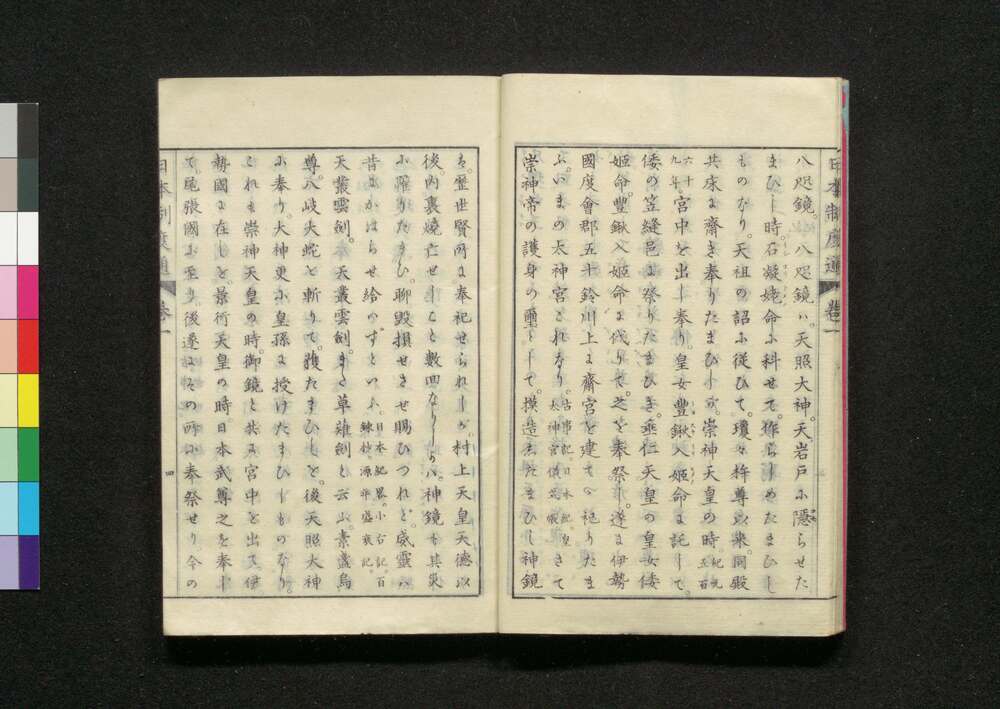 八咫鏡。八咫鏡ハ。天照大神。天岩戸ふ隱らせた
まひし時石凝姥命ふ科せて。作らしめたまひし
ものなり。天祖の詔ふ従ひて。瓊々杵尊以来。同殿
共床ふ齋き奉りたまひしが。崇神天皇の時。紀元五百
六十九年。宮中を出し奉り皇女豐鍬入姬命ふ託して。
倭の笠縫邑ふ祭りたまひき。垂仁天皇の皇女倭
姬命。豐鍬入姬命ふ代りて。之を奉祭し。遂ふ伊勢
國度會郡五十鈴川上ふ齋宮を建てゝ祀りたま
ふ。いまの太神宮これなり。古事記。日本紀。皇太神宮儀式帳。さて
崇神帝の護身の璽として。摸造したまひし神鏡
を。歷世賢所ふ奉祀せられしが。村上天皇天德以
後。内裏燒亡せしこと數囬なりしらバ。神鏡も其災
ふ罹りたまひ。聊毀損せさせ賜ひつれど。威靈ハ
昔ふかはらせ給かずといふ。日本紀畧。小右記。百錬抄。源平盛衰記。
天叢雲劍。天叢雲劍。また草薙劍と云ふ。素盞烏
尊。八岐大蛇を斬りて。獲たまひしを。後天照大神
ふ奉り。大神更ふ皇孫ふ授けたまひしものなり。
これも崇神天皇の時。御鏡と共ふ宮中を出て伊
勢國ふ在しを。景行天皇の時。日本武尊之を奉し
て。尾張國ふ至り。後遂ふその所ふ奉祭せり。今の
日本制度通 卷一
四